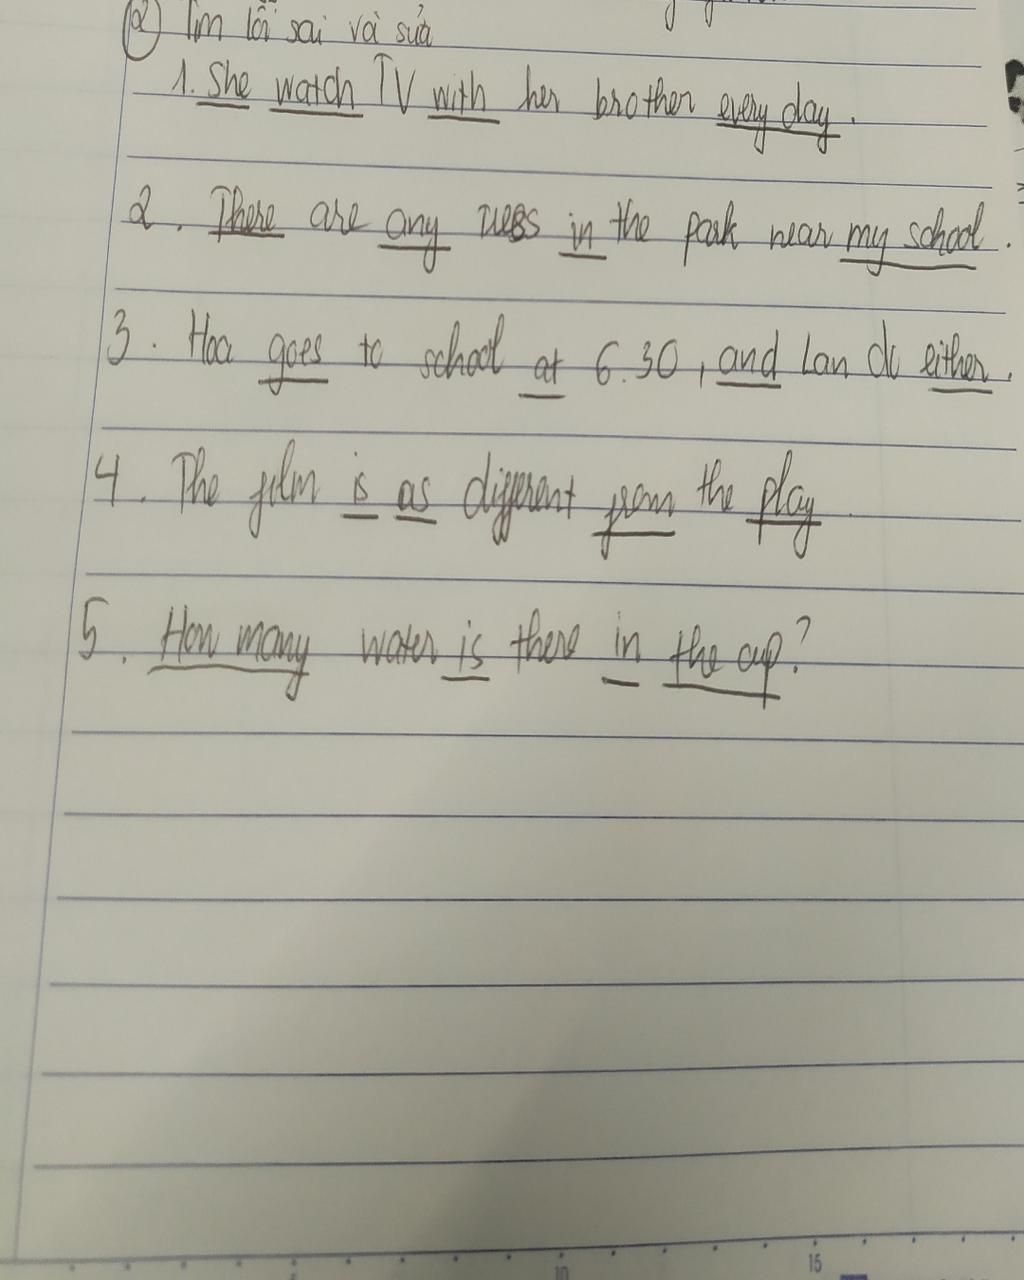 ② Tìm lỗi sai và sửa
1. She watch TV with her brother every day.
2. There are any trees in the park near my school.
3. Hoa goes to school at 6.30, and Lan do either.
4. The film is as different from the play
5. How many water is there in the cup?
10
15